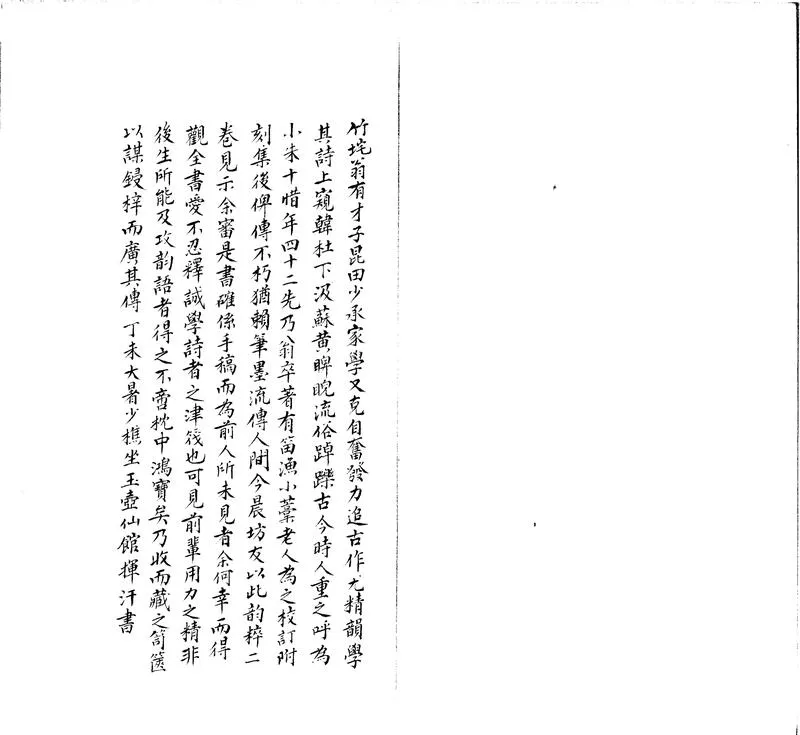 竹垞翁有才子昆田少承家學又克自奮發力追古作尤精韻學
其詩上窺韓杜下汲蘇黄睥睨流俗踔躒古今時人重之呼為
小朱十惜年四十二先乃翁卒著有笛漁小藁老人為之校訂附
刻集後俾傳不朽猶賴筆墨流傳人間今晨坊友以此韵粹二
卷見示余審是書確係手稿而為前人所未見者余何幸而得
觀全書愛不忍釋誠學詩者之津筏也可見前輩用力之精非
後生所能及攻韵語者得之不啻枕中鴻寶矣乃收而藏之笥篋
以謀鋟梓而廣其傳丁未大暑少樵坐玉壺仙館揮汗書